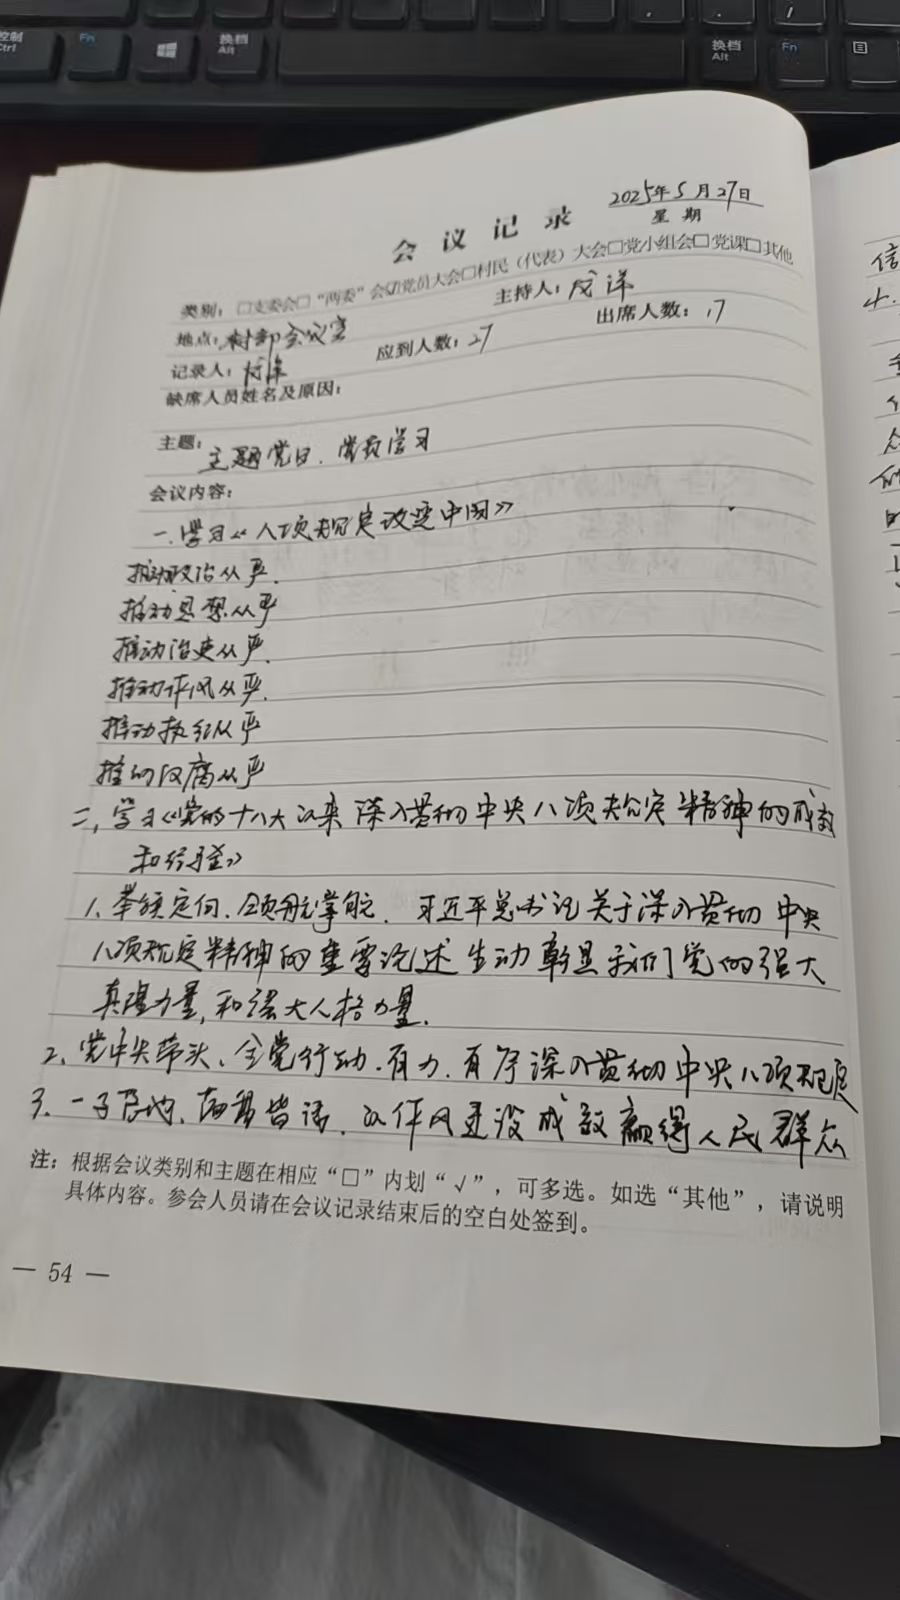 控制
Ctrl
Fn
换档
Alt
换档
Alt
Fn
会议记录
2025年5月27日
星期
类别：□支委会□“两委”会☑党员大会□村民（代表）大会□党小组会□党课□其他
地点：村部会议室 主持人：
记录人： 应到人数：27 出席人数：17
缺席人员姓名及原因：
主题：主题党日、党员学习
会议内容：
一、学习《八项规定改变中国》
推动政治从严.
推动思想从严
推动治吏从严.
推动作风从严.
推动执纪从严
推动反腐从严
二、学习《党的十八大以来深入贯彻中央八项规定精神的成效
和经验》
1、举旗定向、领航掌舵. 习近平总书记关于深入贯彻中央
八项规定精神的重要论述生动彰显我们党的强大
真理力量,和强大人格力量.
2、党中央带头、全党行动.有力.有序深入贯彻中央八项规定
3、一子落地、满盘皆活.以作风建设成效赢得人民群众
注：根据会议类别和主题在相应“□”内划“√”，可多选。如选“其他”，请说明
具体内容。参会人员请在会议记录结束后的空白处签到。
— 54 —
信
4.